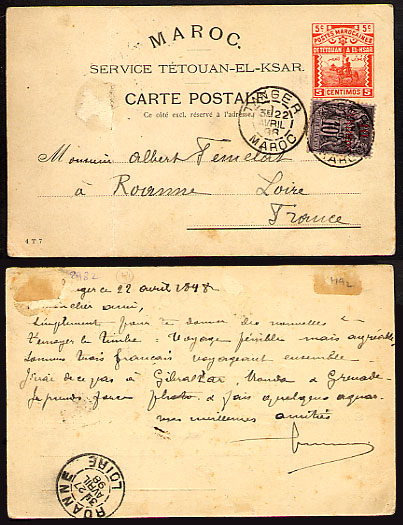 MAROC.
SERVICE TÉTOUAN-EL-KSAR.
CARTE POSTALE
Ce côté excl. réservé à l'adresse.
5c 5c
POSTES MAROCAINES
DE TETOUAN A EL-KSAR
5 CENTIMOS 5
TANGER
3E 22
AVRIL
98
MAROC
10
MAROC
Monsieur Albert
à Roanne Loire
France
4 T 7
2982
492
ce 22 avril 1898
cher ami,
Simplement pour te donner des nouvelles &
le timbre. Voyage pénible mais
Sommes trois français voyageant ensemble
J'irai de ce pas à Gibraltar, Ronda & Grenade
Je prends force photo & fais quelques
mes meilleures amitiés
ROANNE
3E 27
AVRIL
98
LOIRE